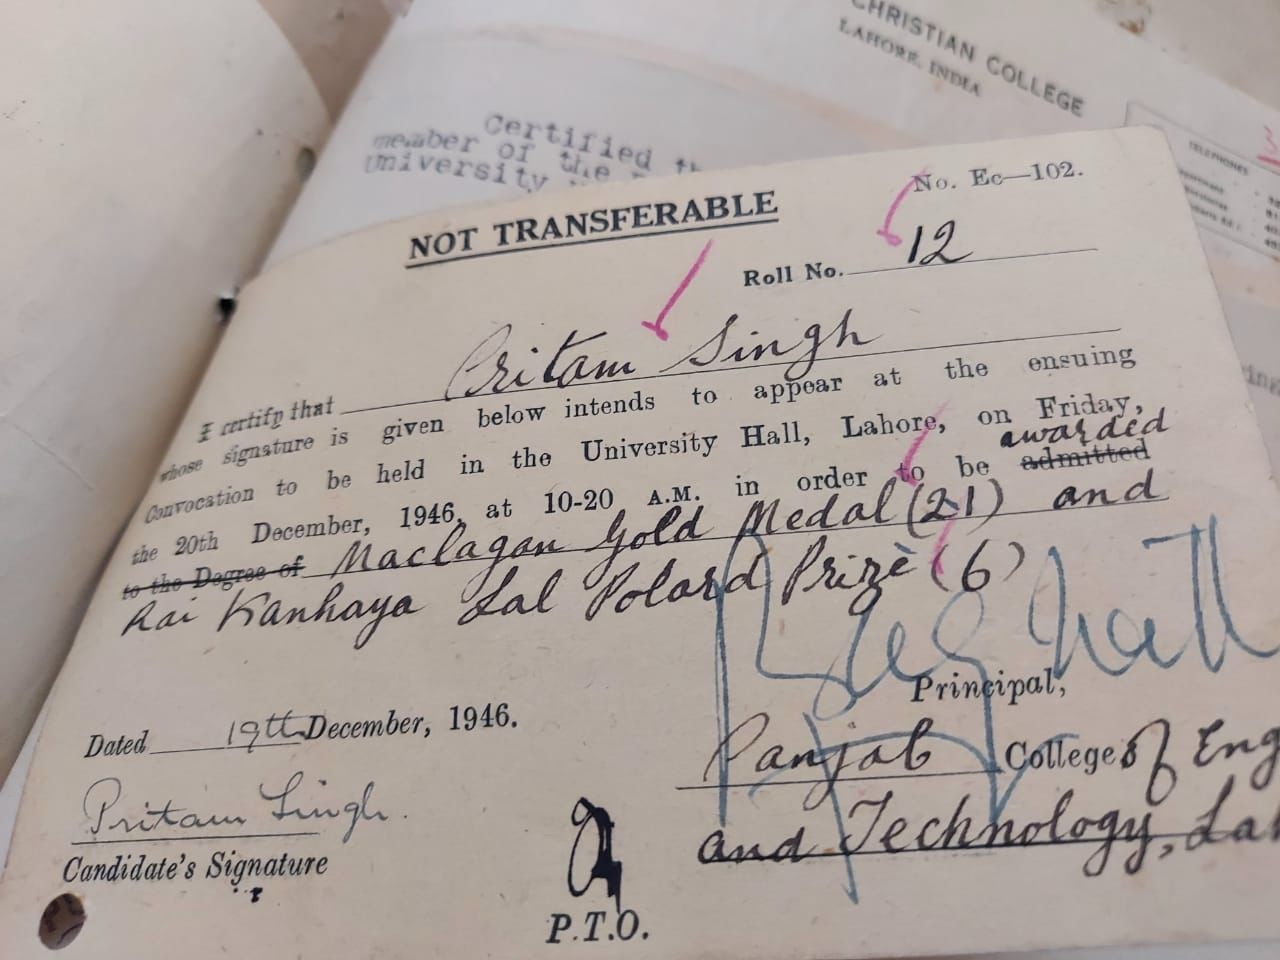 CHRISTIAN COLLEGE
LAHORE, INDIA
TELEPHONES
Certified
member of the
University
No. Ec—102.
NOT TRANSFERABLE
Roll No. 12
I certify that Pritam Singh
whose signature is given below intends to appear at the ensuing
Convocation to be held in the University Hall, Lahore, on Friday,
awarded
the 20th December, 1946, at 10-20 A.M. in order to be admitted
to the Degree of Maclagan Gold Medal (21) and
Rai Kanhaya Lal Polard Prize (6)
Principal,
Dated 19th December, 1946.
Panjab College of Eng
and Technology, La
Pritam Singh.
Candidate's Signature
P.T.O.